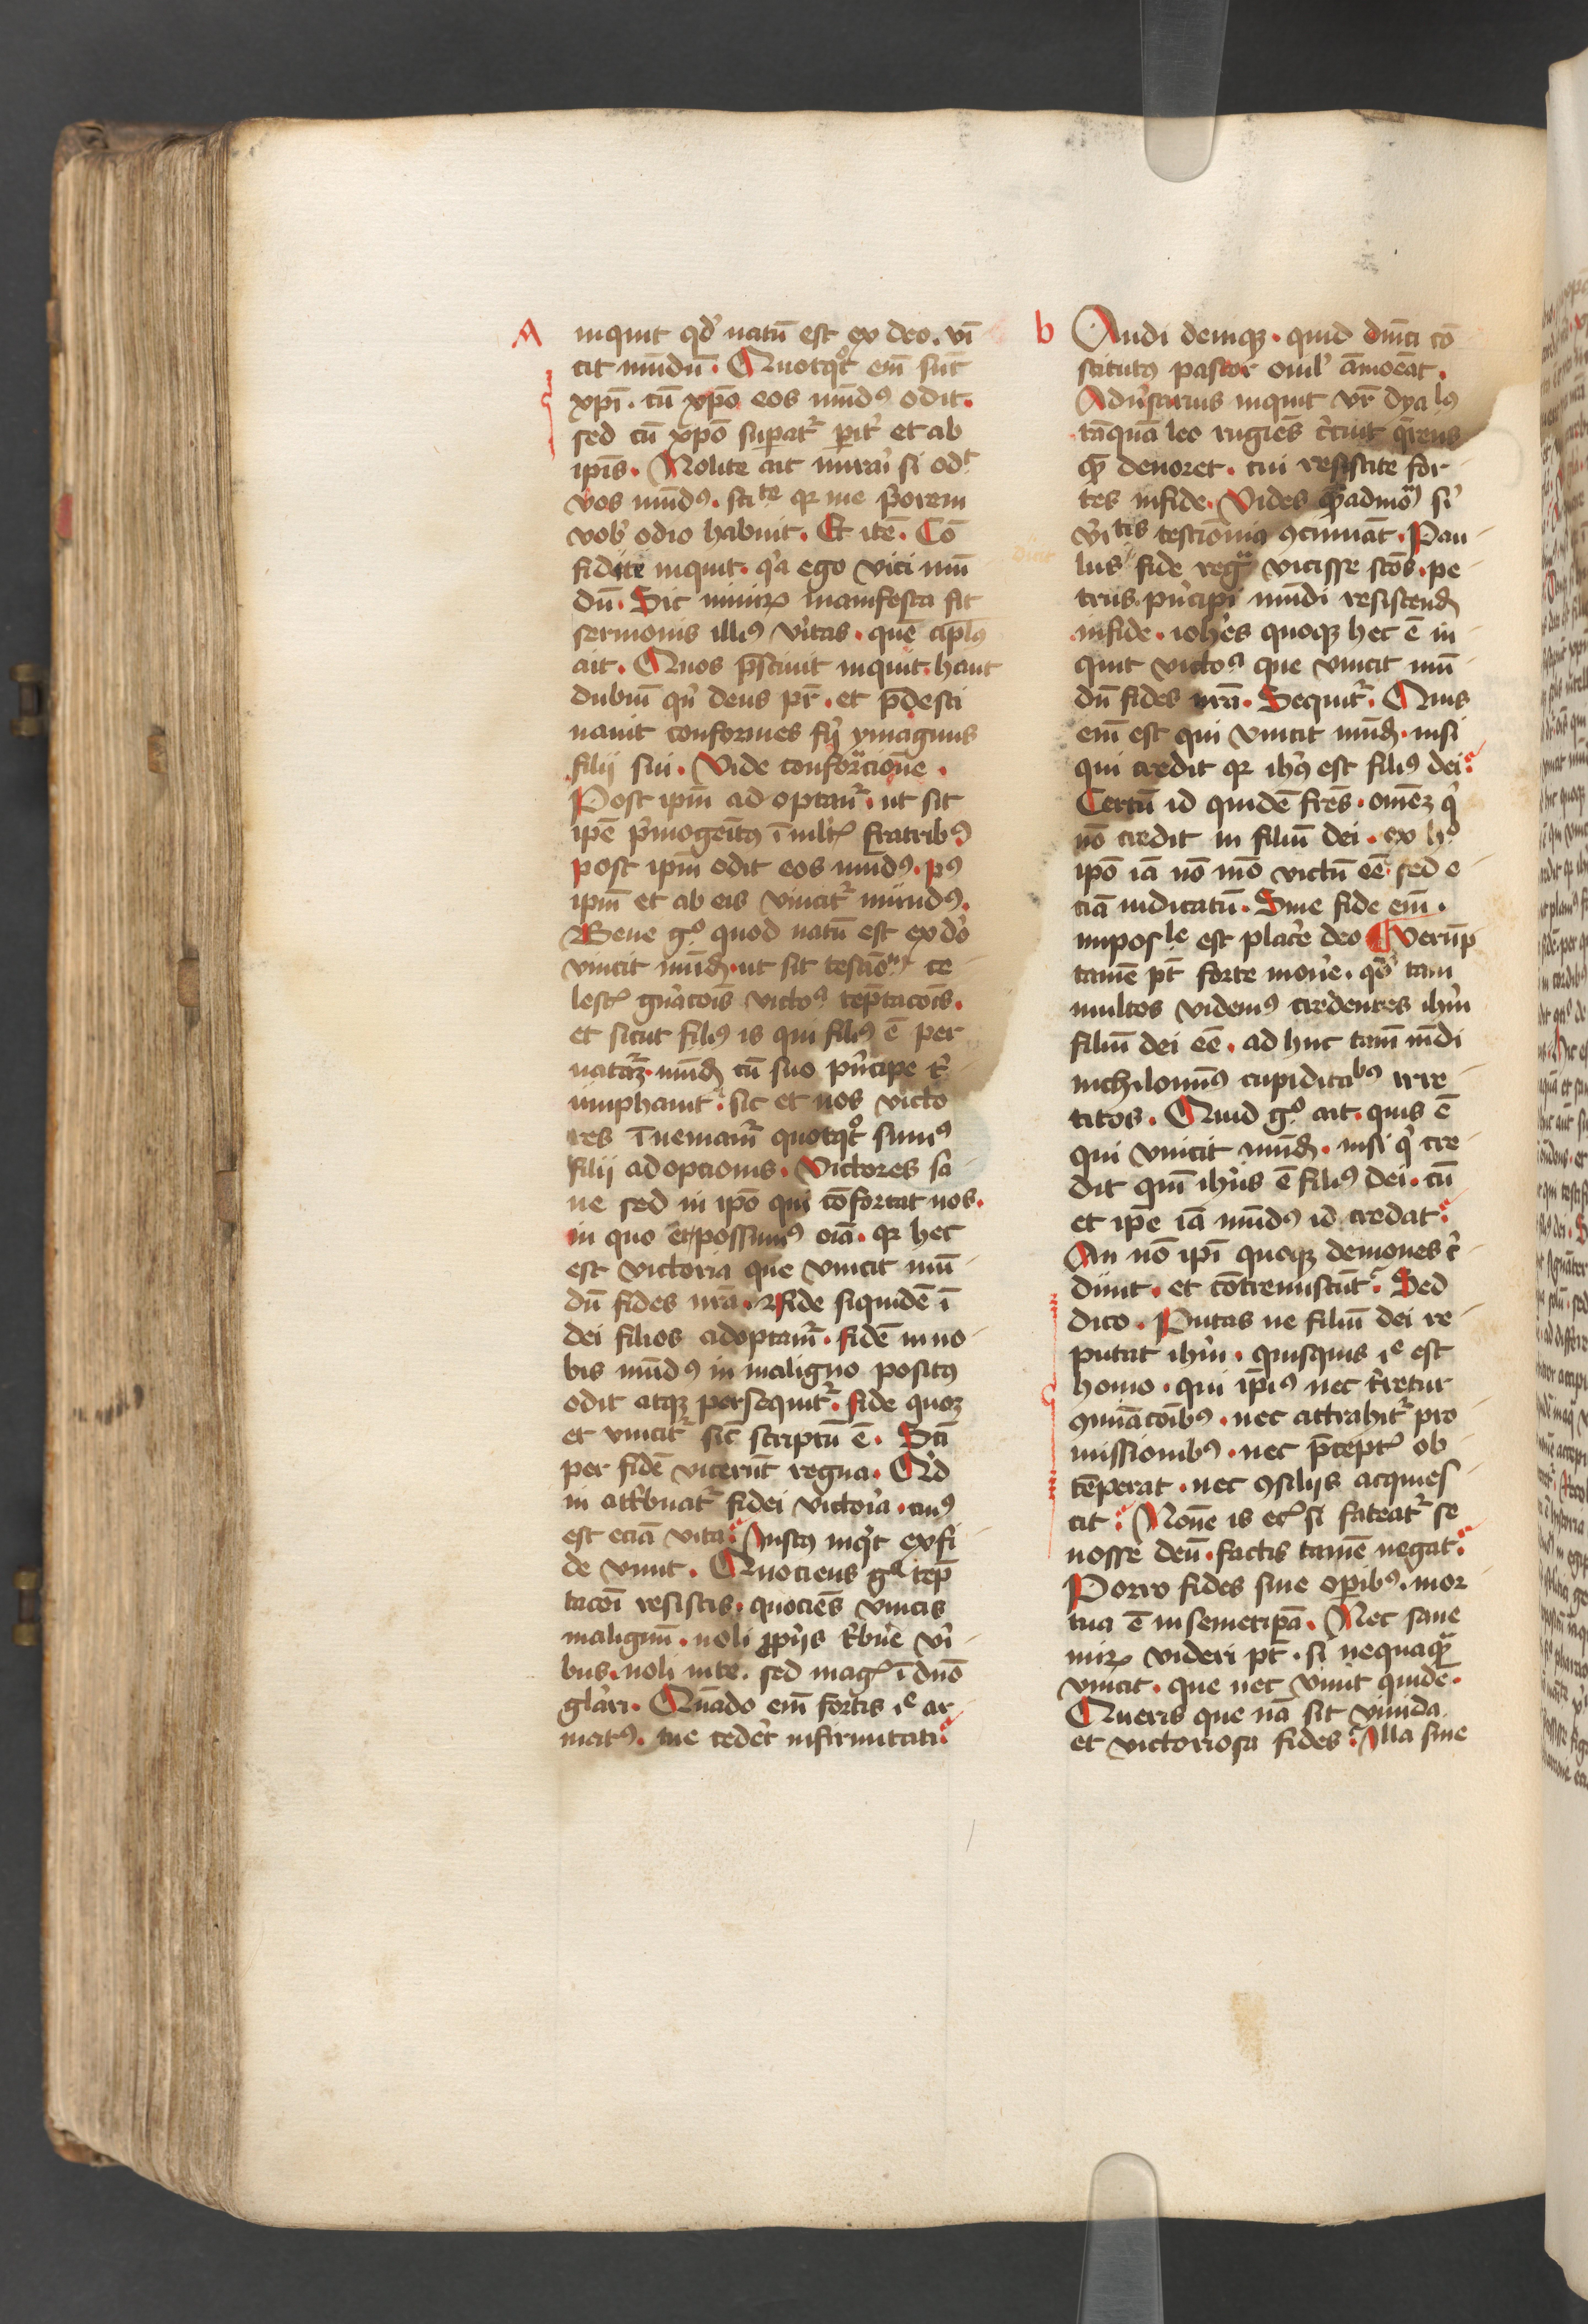 A
inquit qd' natū est ex deo. vī
cit mūdū. Quotqͦt em̄ sūt
xp̄i. cū xp̄o eos mūdꝰ odit.
sed cū xp̄o supatͬ pit' et ab
ip̄is. Nolite ait mirai' si odᵗ
vos mūdꝰ. sciᵗᵉ qꝛ me p'orem
vob' odio habuit. Et itē. Cō
fidite inquit. q'a ego vici mū
dū. Sic nimiꝝ manifesta fit
sermonis illiꝰ v'itas. quē ap̄lꝰ
ait. Quos p̄sciuit inquit. haut
dubiū qn̄ deus pr̄. et p̄desti
nauit conformes fij ymaginis
filij sui. Vide conforᵃcionē.
Post ipm̄ adoptamͬ. ut sit
ipē p'mogeitꝰ ī mlt' fratribꝰ
post ipm̄ odit eos mūdꝰ. pꝰ
ipm̄ et ab eis vincitͬ mundꝰ.
Bene gͦ quod natū est ex d'o
vincit mūdū. ut sit
ce
lest' gn̄acois victoͣ tēptacois.
et sicut filiꝰ is qui filiꝰ ē per
natāꝫ. mūdū cū suo p'ncipe t'
umphauit. sic et nos victo
res īueniamͬ quotqͦt sumꝰ
filij adopcionis. Victores sa
ne sed in ipō qui cōfortat nos.
in quo et possumꝰ oīa. qꝛ hec
est victoria que vincit mū
dū fides nr̄a. Fide siquidē ī
dei filios adoptamͬ. fidē in no
bis mūdꝰ in maligno positꝰ
odit atqꝫ persequitͬ. fide quoqꝫ
et vincitͬ sic̄ scriptū ē. Sc̄i
per fidē vicerūt regna. Q'd
ni att'buatͬ fidei victoria. cuiꝰ
est eciā vita. Iustꝰ inq't ex fi
de viuit. Quociens gͦ tēp
tacōi resistis. quociēs vincis
malignū. noli ꝓprijs t'buē vi'
bus. noli in te. sed magꝭ ī dn̄o
gl'ari. Qn̄ado em̄ fortis iͤ ar
matꝰ. tue cedēt infirmitati.
b
Audi deniqꝫ. quid dn̄ici cō
stitutꝰ pastor ouil' āmoēat.
Adu'sarius inquit vr̄ dyalꝰ
tāquā leo rugiēs c'cuit q̄rens
quē deuoret. cui resistite for
tes in fide. Vides
v'iᵗⁱˢ testimōia ꝯcinūāt. Pau
lus fide regᵃ vicisse sc̄os. pe
trus. p'ncipi mūdi resistend
in fide. ioh'es quoqꝫ hec ē in
quit victoͣ que vincit mū
dū fides nr̄a. Sequitͬ. Quis
em̄ est qui vincit mūdū. nisi
qui credit qꝛ ihꝰ est filiꝰ dei.
Certū id quidē fr̄es. omēꝫ q'
nō credit in filiū dei. ex hͦ
ipō iā nō mō victū eē. sed e
ciā iudicatū. Sine fide em̄.
imposˡᵉ est plac'e deo ¶ Verūp
tamē pt̄ forte mou'e. qͦd' tam
multos videmꝰ credentes ihm̄
filiū dei eē. ad huc tam̄ mūdi
nichilomiꝰ cupiditaᵇꝰ irre
titos. Quid gͦ ait. quis ē
qui vincit mūdū. nisi q' cre
dit qm̄ ih'us ē filiꝰ dei. cū
et ip̄e iā mūdꝰ id credat.
An nō ip̄i quoqꝫ demones c'
dunt. et cōtremiscūt. Sed
dico. Putas ne filiū dei re
putat ihm̄. quisquis iͤ est
homo. qui ip̄iꝰ nec t'retur
ꝯmīacōibꝰ. nec attrahitͬ pro
missionibꝰ. nec p̄ceptꝭ ob
tēperat. nec ꝯsilijs acquies
cit. Nōne is ecꝭ si fateatͬ se
nosse deū. factis tamē negat.
Porro fides sine op̄ibꝰ. mor
tua ē in semetip̄a. Nec sane
miꝝ videri pt̄. si nequaqᵃ̄
vincit. que nec viuit quidē.
Queris que nā sit viuida
et victoriosa fides. Illa sine